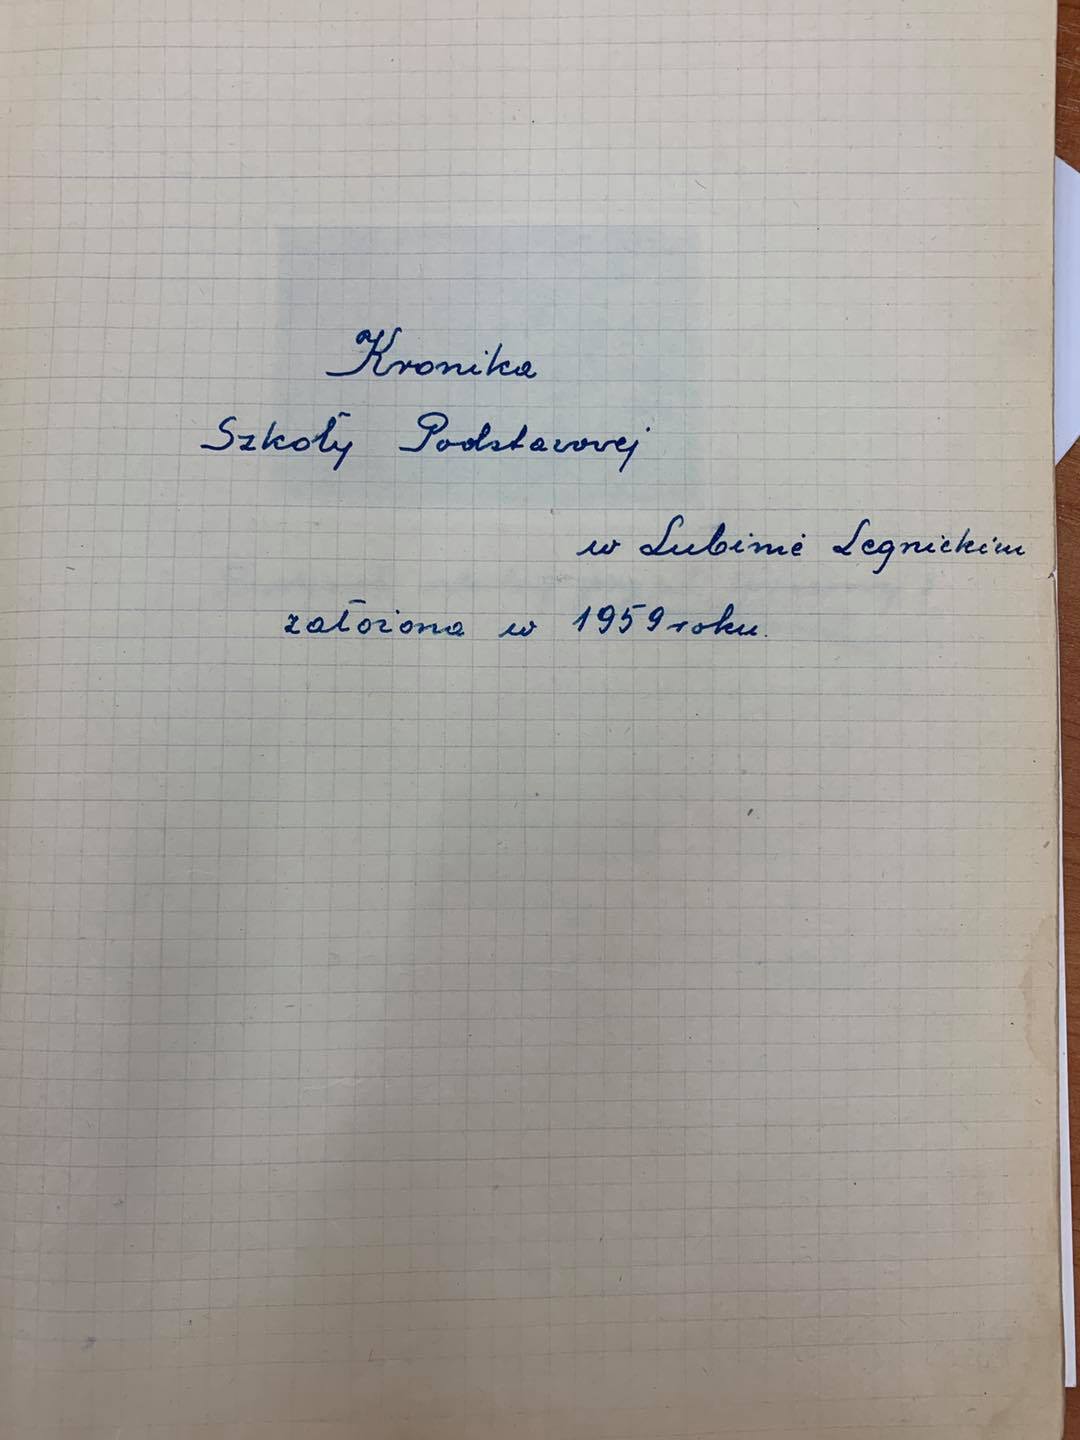 Kronika
Szkoły Podstawowej
w Lubinie Legnickim
założona w 1959 roku.